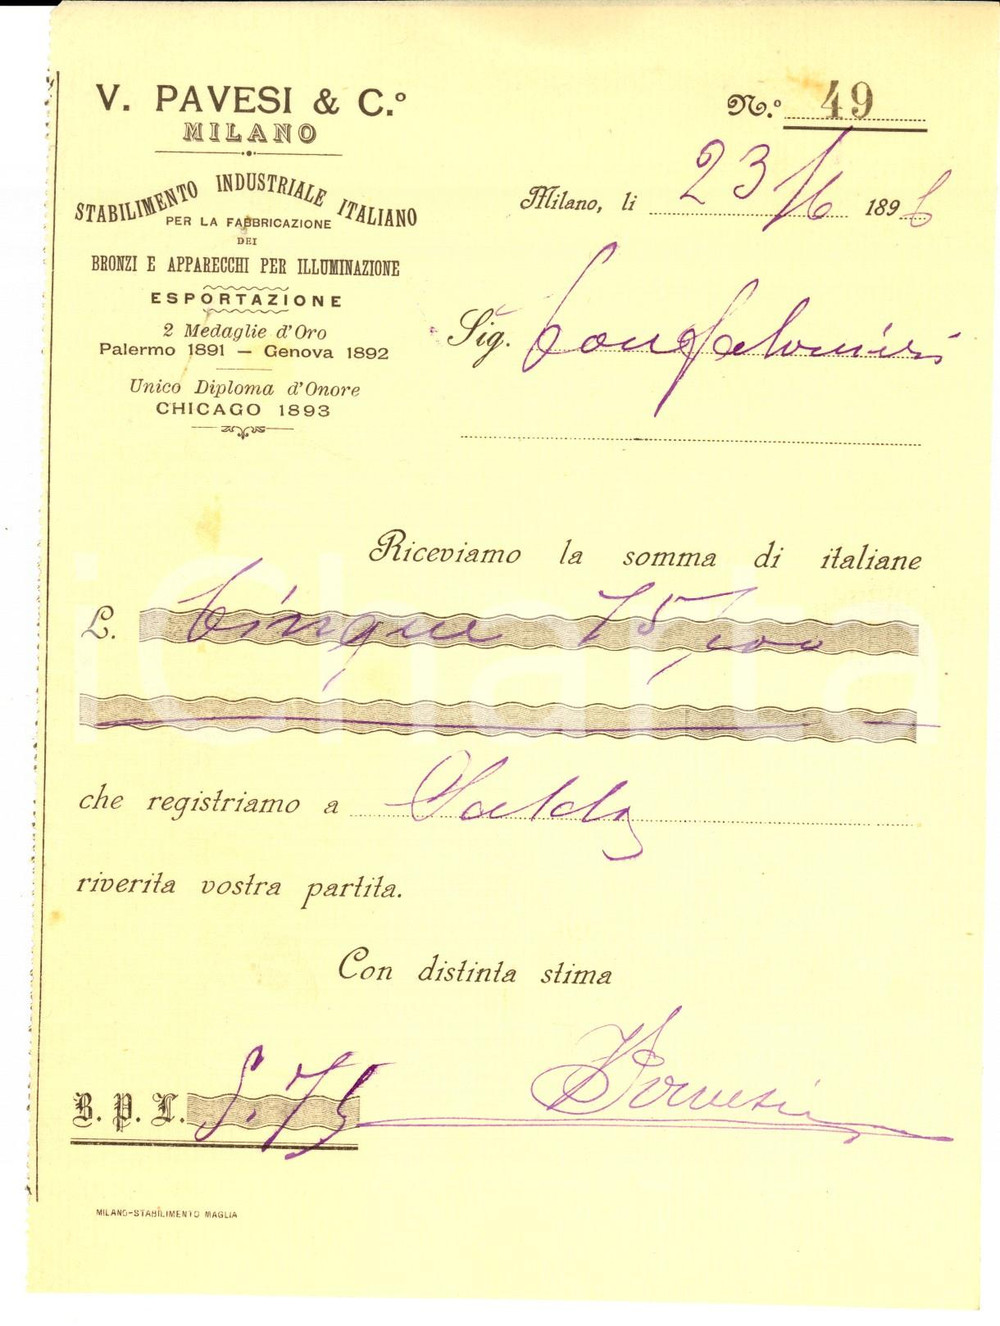 V. PAVESI & C.º
MILANO
STABILIMENTO INDUSTRIALE ITALIANO
PER LA FABBRICAZIONE
DEI
BRONZI E APPARECCHI PER ILLUMINAZIONE
ESPORTAZIONE
2 Medaglie d'Oro
Palermo 1891 — Genova 1892
Unico Diploma d'Onore
CHICAGO 1893
N.º 49
Milano, li 23/6 1896
Sig. Confalonieri
Riceviamo la somma di italiane
L. Cinque 75/100
che registriamo a Saldo
riverita vostra partita.
Con distinta stima
VPavesi
B. P. L. 5.75
MILANO-STABILIMENTO MAGLIA
iCharta